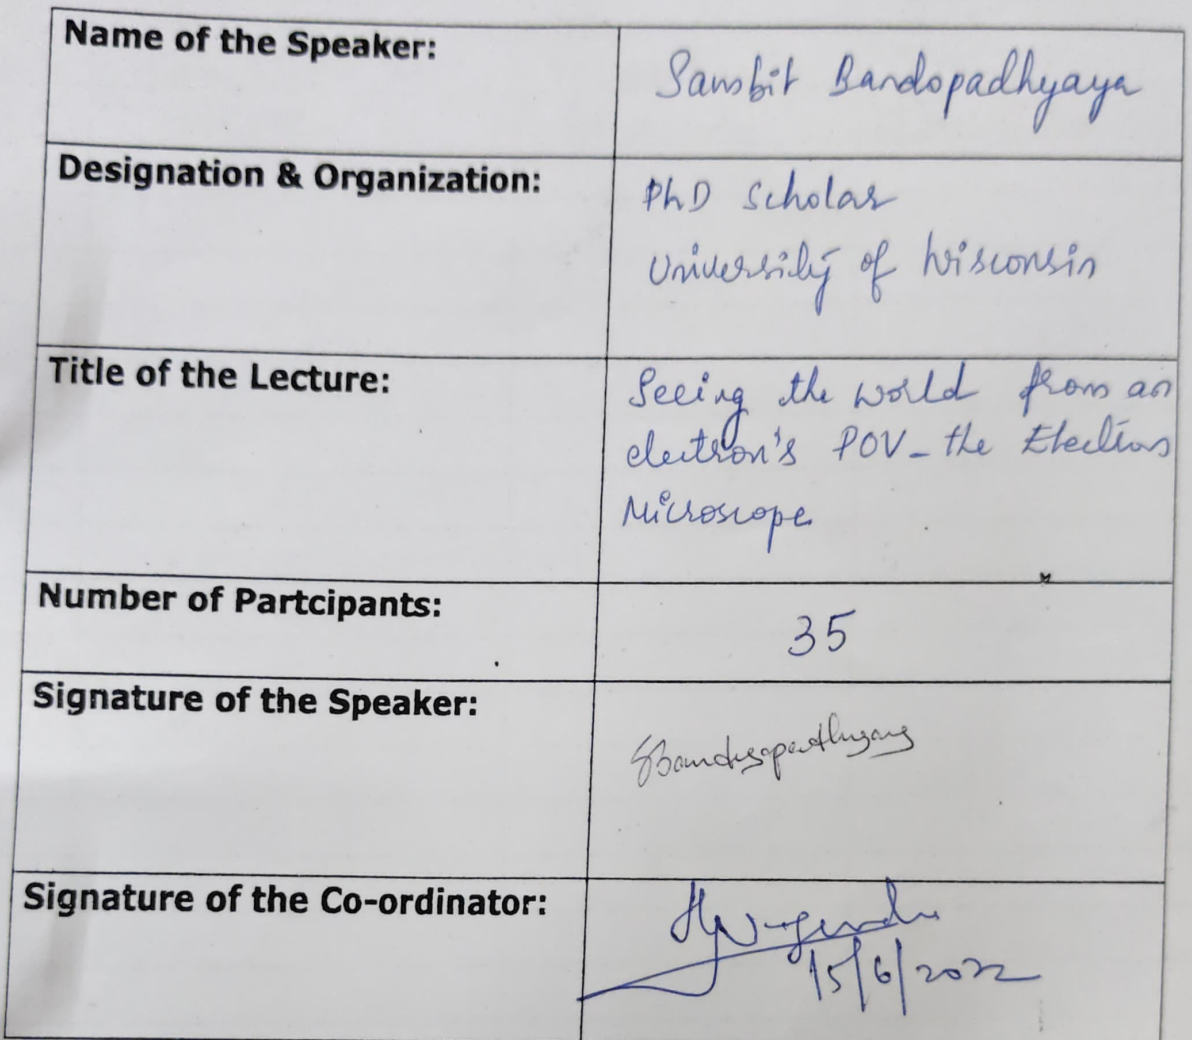 Name of the Speaker:
Sambit Bandopadhyaya
Designation & Organization:
PhD Scholar
University of Wisconsin
Title of the Lecture:
Seeing the world from an
electron's POV - the Electron
Microscope
Number of Partcipants:
35
Signature of the Speaker:
SBandyopadhyay
Signature of the Co-ordinator:
15/6/2022